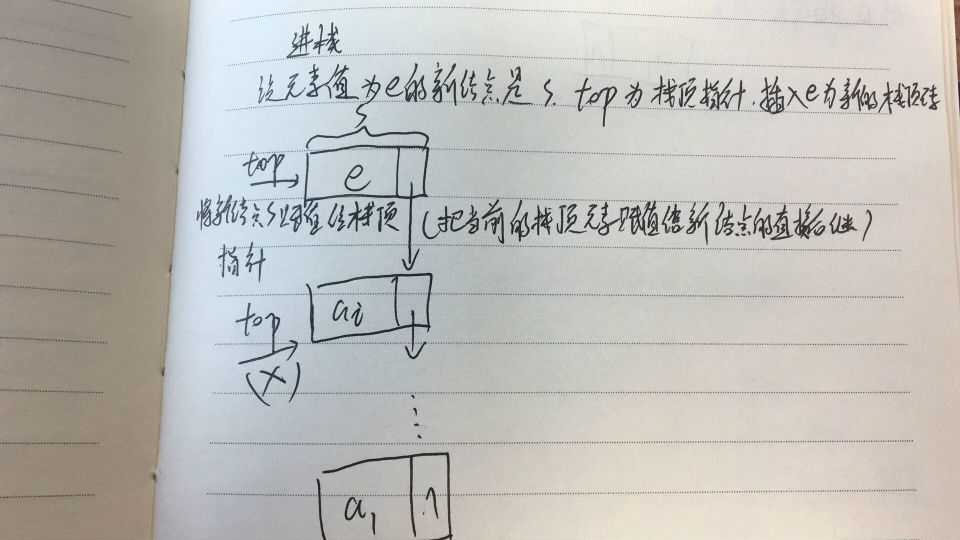 进栈
设元素值为e的新结点是s, top为栈顶指针,插入e为新的栈顶元素
s
top
e
将新结点s赋值给栈顶
指针
(把当前的栈顶元素赋值给新结点的直接后继)
ai
top
(×)
⋮
a1
∧